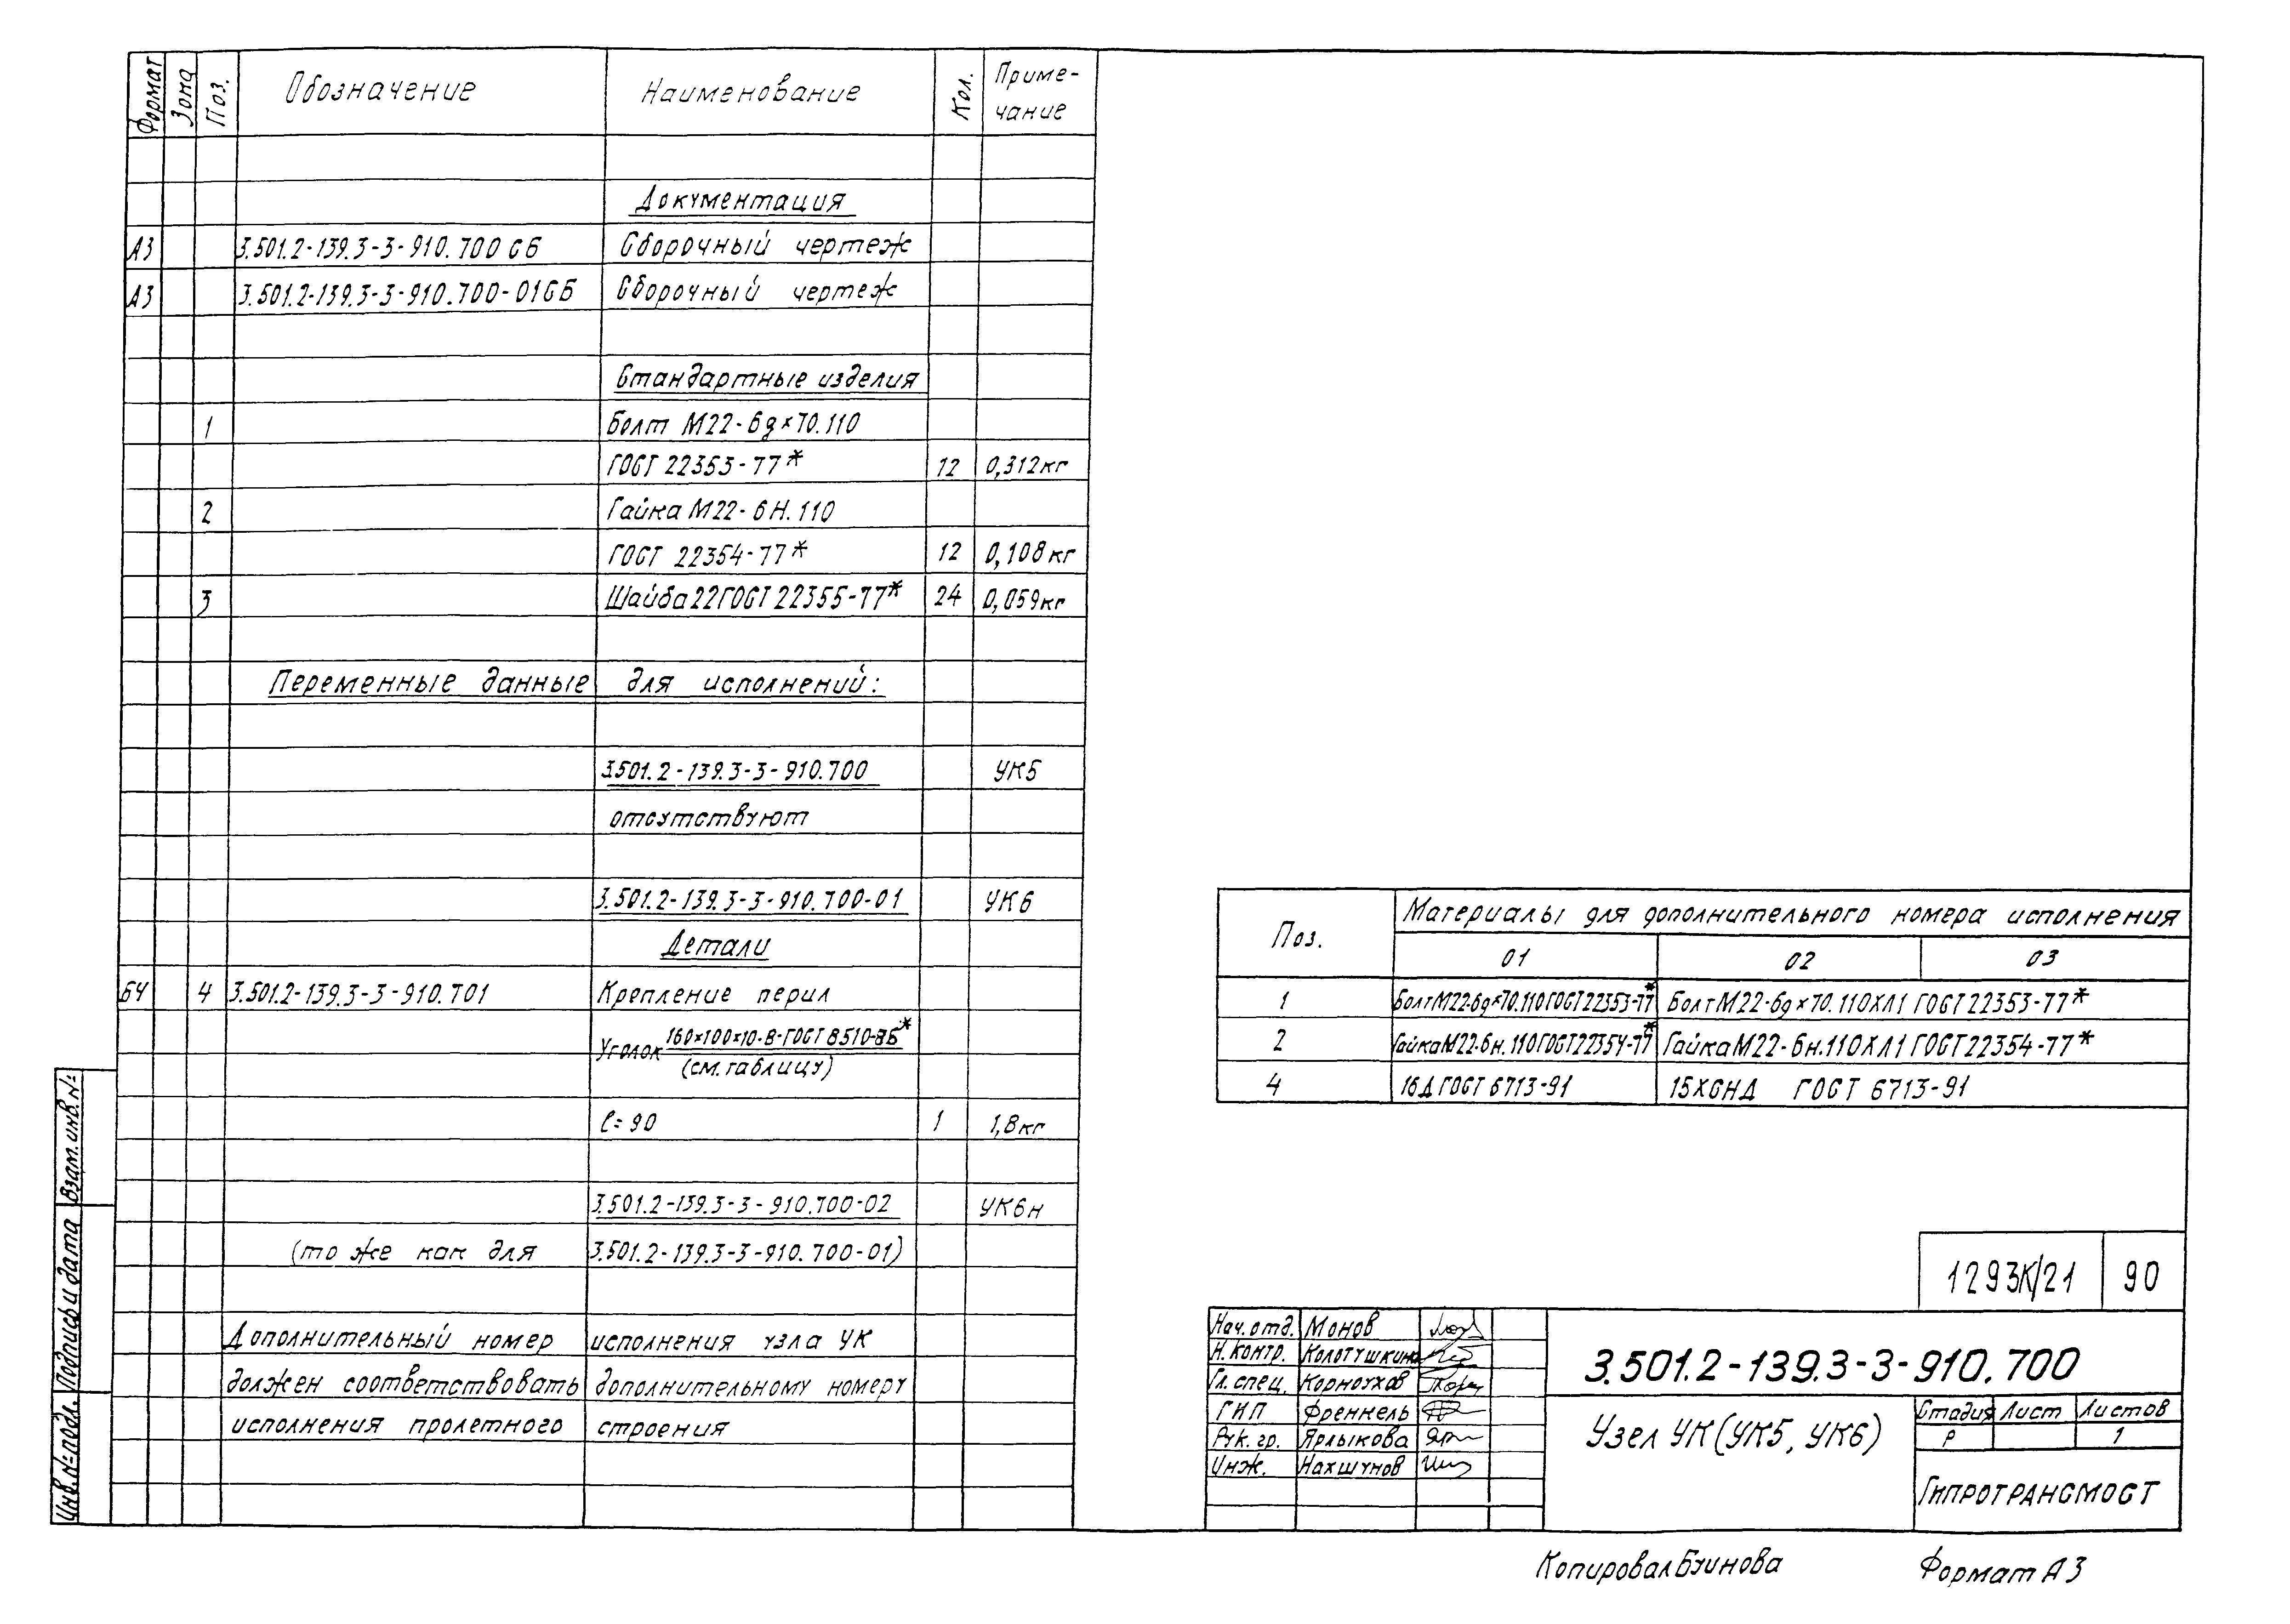 Формат Зона Поз. Обозначение Наименование Кол. Приме-
чание
Документация
А3 3.501.2-139.3-3-910.700 СБ Сборочный чертеж
А3 3.501.2-139.3-3-910.700-01СБ Сборочный чертеж
Стандартные изделия
1 Болт М22-6g×70.110
ГОСТ 22353-77* 12 0,312кг
2 Гайка М22-6Н.110
ГОСТ 22354-77* 12 0,108кг
3 Шайба 22 ГОСТ 22355-77* 24 0,059кг
Переменные данные для исполнений:
3.501.2-139.3-3-910.700 УК5
отсутствуют
3.501.2-139.3-3-910.700-01 УК6
Детали
БЧ 4 3.501.2-139.3-3-910.701 Крепление перил
Уголок 160×100×10-В-ГОСТ 8510-86*
(см. таблицу)
ℓ=90 1 1,8кг
3.501.2-139.3-3-910.700-02 УК6н
(то же как для 3.501.2-139.3-3-910.700-01)
Дополнительный номер исполнения узла УК
должен соответствовать дополнительному номеру
исполнения пролетного строения
Взам.инв.№
Подпись и дата
Инв.№ подл.
Поз. Материалы для дополнительного номера исполнения
01 02 03
1 Болт М22-6g×70.110 ГОСТ 22353-77* Болт М22-6g×70.110ХЛ1 ГОСТ 22353-77*
2 Гайка М22-6н.110 ГОСТ 22354-77* Гайка М22-6н.110ХЛ1 ГОСТ 22354-77*
4 16Д ГОСТ 6713-91 15ХСНД ГОСТ 6713-91
1293К/21 90
Нач.отд. Монов
Н.контр. Колотушкина
Гл.спец. Корноухов
ГИП Френкель
Рук.гр. Ярлыкова
Инж. Нахшунов
3.501.2-139.3-3-910.700
Узел УК(УК5, УК6)
Стадия Лист Листов
Р 1
ГИПРОТРАНСМОСТ
Копировал Буинова Формат А3